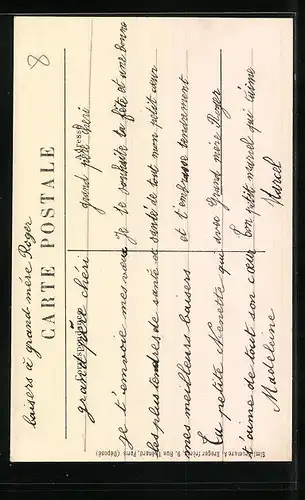 8
baisers à grand mére Roger
CARTE POSTALE
Correspondance
grand père chéri
je t'envoie mes vœux
les plus tendres de santé et
mes meilleurs baisers
Ta petite Nenette qui
t'aime de tout son cœur
Madeleine
Adresse
grand père chéri
je te souhaite ta fête et une bonne
santé de tout mon petit cœur
et t'embrasse tendrement
avec Grand mère Roger
ton petit marcel qui t'aime
Marcel
Breger frères, 9, Rue Thénard, Paris (Déposé)